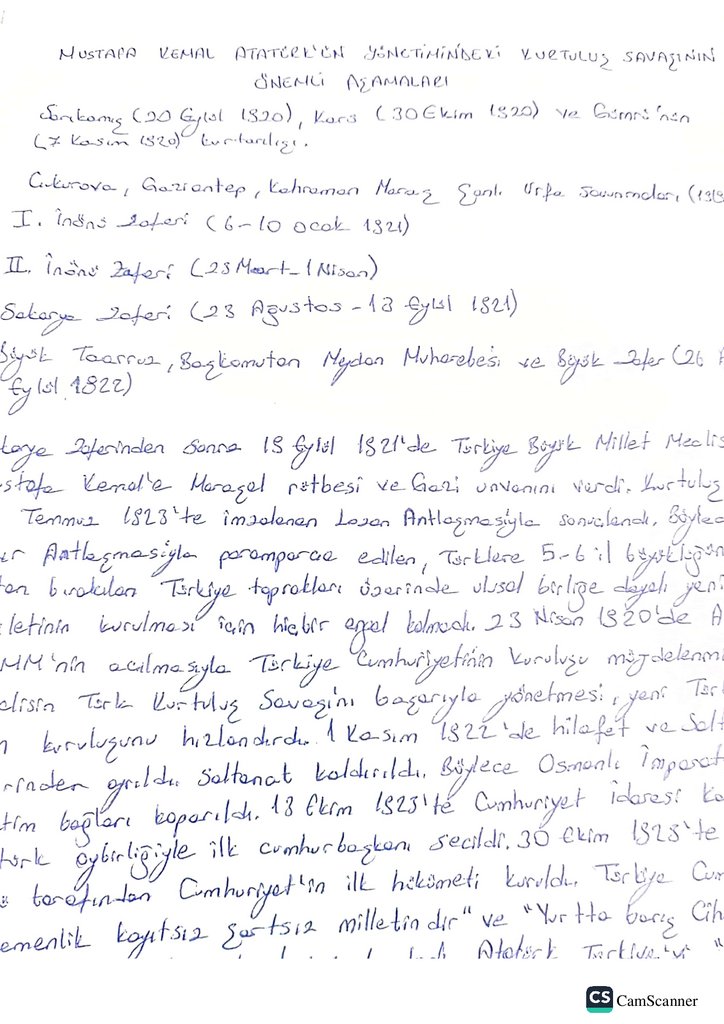 MUSTAFA KEMAL ATATÜRK'ÜN YÖNETİMİNDEKİ KURTULUŞ SAVAŞININ
ÖNEMLİ AŞAMALARI
Sarıkamış (20 Eylül 1920), Kars (30 Ekim 1920) ve Gümrü'nün
(7 Kasım 1920) kurtarılışı.
Çukurova, Gaziantep, Kahraman Maraş Şanlı Urfa savunmaları (191
I. İnönü Zaferi (6-10 Ocak 1921)
II. İnönü Zaferi (23 Mart-1 Nisan)
Sakarya Zaferi (23 Ağustos-13 Eylül 1921)
Büyük Taarruz, Başkomutan Meydan Muharebesi ve Büyük Zafer (26 A
Eylül 1922)
karya Zaferinden sonra 19 Eylül 1921'de Türkiye Büyük Millet Meclis
stafa Kemal'e Mareşal rütbesi ve Gazi unvanını verdi. Kurtuluş
Temmuz 1923'te imzalanan Lozan Antlaşmasıyla sonuçlandı. Böylec
vr Antlaşmasıyla paramparça edilen, Türklere 5-6 il büyüklüğün
tan bırakılan Türkiye toprakları üzerinde ulusal birliğe dayalı yeni
letinin kurulması için hiçbir engel kalmadı. 23 Nisan 1920'de A
MM'nin açılmasıyla Türkiye Cumhuriyetinin kuruluşu müjdelenmi
clisin Türk Kurtuluş Savaşını başarıyla yönetmesi, yeni Tür
n kuruluşunu hızlandırdı. 1 Kasım 1922'de hilafet ve Salt
rinden ayrıldı, Saltanat kaldırıldı. Böylece Osmanlı İmparat
tim bağları koparıldı. 13 Ekim 1923'te Cumhuriyet idaresi ka
türk oybirliğiyle ilk cumhurbaşkanı seçildi. 30 Ekim 1923'te
ü tarafından Cumhuriyet'in ilk hükümeti kuruldu. Türkiye Cum
emenlik kayıtsız şartsız milletindir" ve "Yurtta barış Cih
Atatürk Türkiye'yi "
CS CamScanner